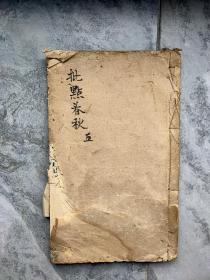 批點春秋
五